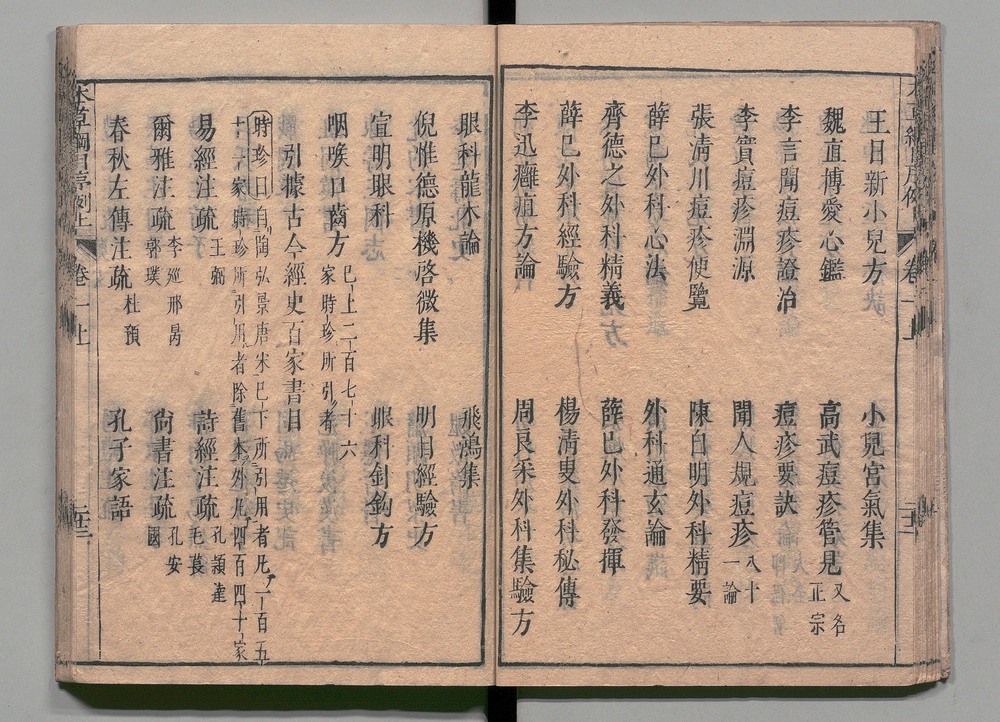 王日新小兒方
小兒宮氣集
魏直博愛心鑑
高武痘疹管見
又名
正宗
李言聞痘疹證治
痘疹要訣
李實痘疹淵源
聞人規痘疹
八十
一論
張清川痘疹便覽
陳自明外科精要
薛己外科心法
外科通玄論
齊德之外科精義
薛己外科發揮
薛己外科經驗方
楊清叟外科秘傳
李迅癰疽方論
周良采外科集驗方
眼科龍木論
飛鴻集
倪惟德原機啓微集
明目經驗方
宣明眼科
眼科針鈎方
咽喉口齒方
已上二百七十六
家時珍所引者
引據古今經史百家書目
時珍曰自陶弘景唐宋已下所引用者凡一百五
十一家時珍所引用者除舊本外凡四百四十家
易經注疏
王弼
詩經注疏
孔穎達
毛萇
爾雅注疏
李巡邢昺
郭璞
尚書注疏
孔安
國
春秋左傳注疏
杜預
孔子家語
本草綱目序例上
卷一上